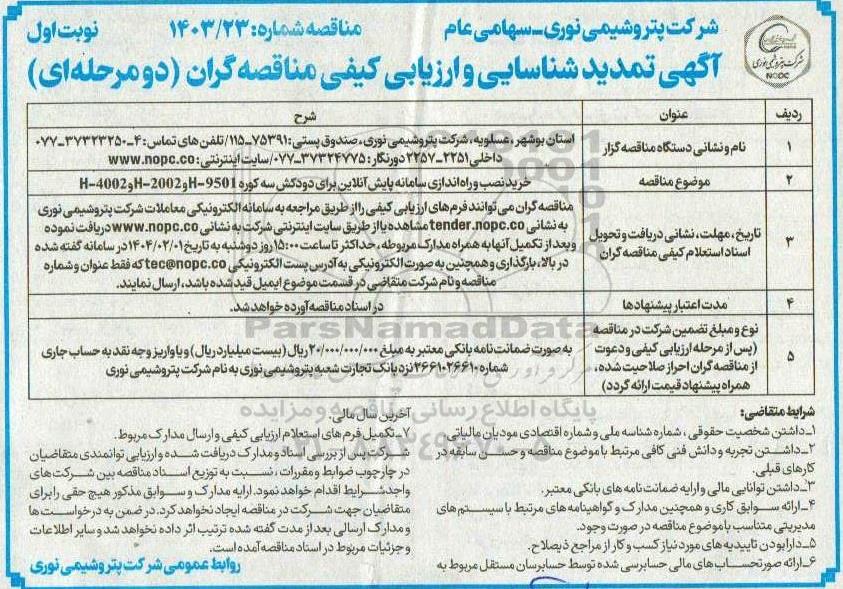 شرکت پتروشیمی نوری-سهامی عام
مناقصه شماره: ۱۴۰۳/۲۳
نوبت اول
شرکت پتروشیمی نوری
NOPC
آگهی تمدید شناسایی و ارزیابی کیفی مناقصه گران (دو مرحله‌ای)
ردیف
عنوان
شرح
۱
نام و نشانی دستگاه مناقصه گزار
استان بوشهر، عسلویه، شرکت پتروشیمی نوری، صندوق پستی: ۷۵۳۹۱-۱۱۵/ تلفن های تماس: ۴-۳۷۳۲۳۲۵۰-۰۷۷
داخلی ۲۲۵۱-۲۲۵۷ دورنگار: ۳۷۳۲۴۷۷۵-۰۷۷/ سایت اینترنتی: www.nopc.co
۲
موضوع مناقصه
خرید نصب و راه اندازی سامانه پایش آنلاین برای دودکش سه کوره H-9501 و H-2002 و H-4002
۳
تاریخ، مهلت، نشانی دریافت و تحویل
اسناد استعلام کیفی مناقصه گران
مناقصه گران می توانند فرم های ارزیابی کیفی را از طریق مراجعه به سامانه الکترونیکی معاملات شرکت پتروشیمی نوری
به نشانی tender.nopc.co مشاهده یا از طریق سایت اینترنتی شرکت به نشانی www.nopc.co دریافت نموده
و بعد از تکمیل آنها به همراه مدارک مربوطه، حداکثر تا ساعت ۱۵:۰۰ روز دوشنبه به تاریخ ۱۴۰۴/۰۲/۰۱ در سامانه گفته شده
در بالا، بارگذاری و همچنین به صورت الکترونیکی به آدرس پست الکترونیکی tec@nopc.co که فقط عنوان و شماره
مناقصه و نام شرکت متقاضی در قسمت موضوع ایمیل قید شده باشد، ارسال نمایند.
۴
مدت اعتبار پیشنهادها
در اسناد مناقصه آورده خواهد شد.
۵
نوع و مبلغ تضمین شرکت در مناقصه
(پس از مرحله ارزیابی کیفی و دعوت
از مناقصه گران احراز صلاحیت شده،
همراه پیشنهاد قیمت ارائه گردد)
به صورت ضمانت نامه بانکی معتبر به مبلغ ۲۰/۰۰۰/۰۰۰/۰۰۰ ریال (بیست میلیارد ریال) و یا واریز وجه نقد به حساب جاری
شماره ۲۶۶۱۰۲۶۶۱۰ نزد بانک تجارت شعبه پتروشیمی نوری به نام شرکت پتروشیمی نوری
ParsNamadData
پایگاه اطلاع رسانی مناقصه و مزایده
شرایط متقاضی:
۱-داشتن شخصیت حقوقی، شماره شناسه ملی و شماره اقتصادی مودیان مالیاتی
۲-داشتن تجربه و دانش فنی کافی مرتبط با موضوع مناقصه و حسن سابقه در
کارهای قبلی.
۳-داشتن توانایی مالی و ارایه ضمانت نامه های بانکی معتبر.
۴-ارائه سوابق کاری و همچنین مدارک و گواهینامه های مرتبط با سیستم های
مدیریتی متناسب با موضوع مناقصه در صورت وجود.
۵-دارا بودن تاییدیه های مورد نیاز کسب و کار از مراجع ذیصلاح.
۶-ارائه صورتحساب های مالی حسابرسی شده توسط حسابرسان مستقل مربوط به
آخرین سال مالی.
۷-تکمیل فرم های استعلام ارزیابی کیفی و ارسال مدارک مربوط.
شرکت پس از بررسی اسناد و مدارک دریافت شده و ارزیابی توانمندی متقاضیان
در چارچوب ضوابط و مقررات، نسبت به توزیع اسناد مناقصه بین شرکت های
واجد شرایط اقدام خواهد نمود. ارایه مدارک و سوابق مذکور هیچ حقی را برای
متقاضیان جهت شرکت در مناقصه ایجاد نخواهد کرد. در ضمن به درخواست ها
و مدارک ارسالی بعد از مدت گفته شده ترتیب اثر داده نخواهد شد و سایر اطلاعات
و جزئیات مربوط در اسناد مناقصه آمده است.
روابط عمومی شرکت پتروشیمی نوری